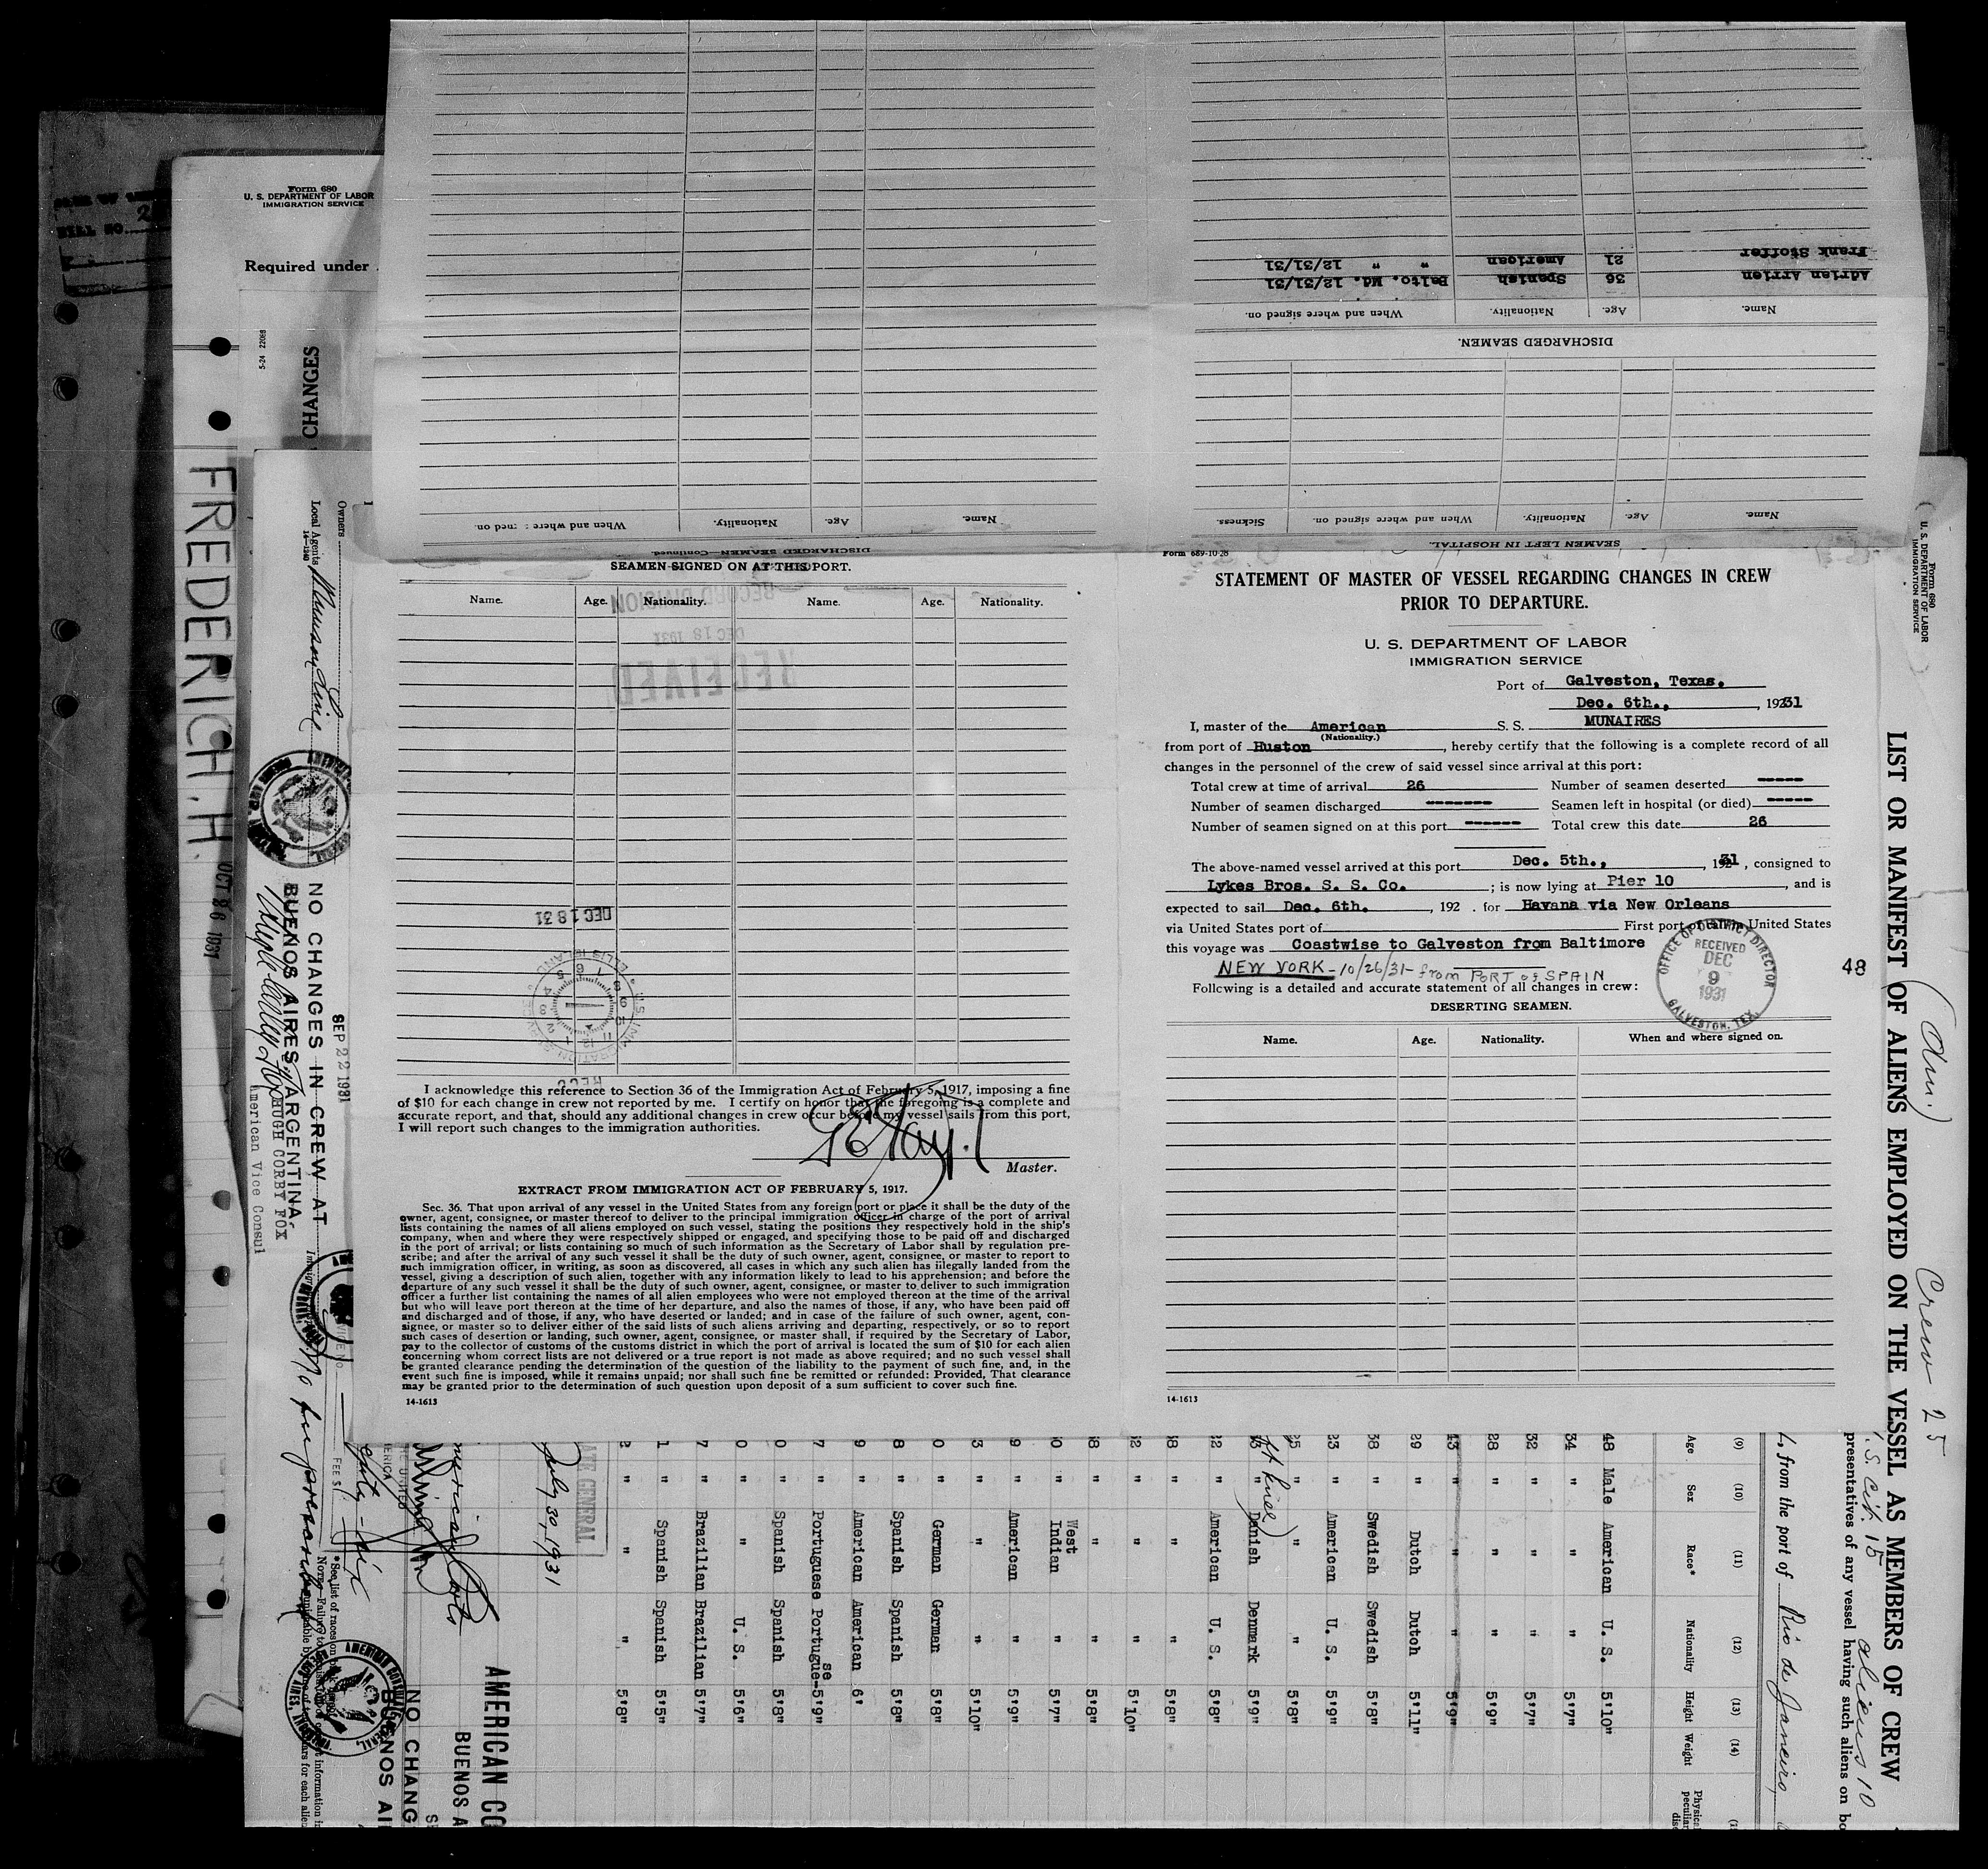 Form 680
U. S. DEPARTMENT OF LABOR
IMMIGRATION SERVICE
Required under
BILL NO.
5-24 22066
CHANGES
FREDERICH.H.
OCT 26 1931
Frank Stoffer 21 American " " 12/31/31
Adrian Arrien 36 Spanish Balto. Md. 12/31/31
Name. Age. Nationality. When and where signed on.
DISCHARGED SEAMEN.
Name. Age. Nationality. When and where signed on. Sickness.
SEAMEN LEFT IN HOSPITAL.
Name. Age. Nationality. When and where signed on.
DISCHARGED SEAMEN—Continued.
SEAMEN SIGNED ON AT THIS PORT.
Name. Age. Nationality. Name. Age. Nationality.
RECORD DIVISION
DEC 18 1931
RECEIVED
DEC 18 31
I acknowledge this reference to Section 36 of the Immigration Act of February 5, 1917, imposing a fine
of $10 for each change in crew not reported by me. I certify on honor that the foregoing is a complete and
accurate report, and that, should any additional changes in crew occur before my vessel sails from this port,
I will report such changes to the immigration authorities.
Master.
EXTRACT FROM IMMIGRATION ACT OF FEBRUARY 5, 1917.
Sec. 36. That upon arrival of any vessel in the United States from any foreign port or place it shall be the duty of the
owner, agent, consignee, or master thereof to deliver to the principal immigration officer in charge of the port of arrival
lists containing the names of all aliens employed on such vessel, stating the positions they respectively hold in the ship's
company, when and where they were respectively shipped or engaged, and specifying those to be paid off and discharged
in the port of arrival; or lists containing so much of such information as the Secretary of Labor shall by regulation pre-
scribe; and after the arrival of any such vessel it shall be the duty of such owner, agent, consignee, or master to report to
such immigration officer, in writing, as soon as discovered, all cases in which any such alien has illegally landed from the
vessel, giving a description of such alien, together with any information likely to lead to his apprehension; and before the
departure of any such vessel it shall be the duty of such owner, agent, consignee, or master to deliver to such immigration
officer a further list containing the names of all alien employees who were not employed thereon at the time of the arrival
but who will leave port thereon at the time of her departure, and also the names of those, if any, who have been paid off
and discharged and of those, if any, who have deserted or landed; and in case of the failure of such owner, agent, con-
signee, or master so to deliver either of the said lists of such aliens arriving and departing, respectively, or so to report
such cases of desertion or landing, such owner, agent, consignee, or master shall, if required by the Secretary of Labor,
pay to the collector of customs of the customs district in which the port of arrival is located the sum of $10 for each alien
concerning whom correct lists are not delivered or a true report is not made as above required; and no such vessel shall
be granted clearance pending the determination of the question of the liability to the payment of such fine, and, in the
event such fine is imposed, while it remains unpaid; nor shall such fine be remitted or refunded: Provided, That clearance
may be granted prior to the determination of such question upon deposit of a sum sufficient to cover such fine.
14-1613
Form 689-10-28
STATEMENT OF MASTER OF VESSEL REGARDING CHANGES IN CREW
PRIOR TO DEPARTURE.
U. S. DEPARTMENT OF LABOR
IMMIGRATION SERVICE
Port of Galveston, Texas.
Dec. 6th., 1931
I, master of the American S. S. MUNAIRES
(Nationality.)
from port of Huston, hereby certify that the following is a complete record of all
changes in the personnel of the crew of said vessel since arrival at this port:
Total crew at time of arrival 26 Number of seamen deserted -----
Number of seamen discharged ------- Seamen left in hospital (or died) -----
Number of seamen signed on at this port ------ Total crew this date 26
The above-named vessel arrived at this port Dec. 5th., 1931, consigned to
Lykes Bros. S. S. Co. ; is now lying at Pier 10, and is
expected to sail Dec. 6th. , 192 . for Havana via New Orleans
via United States port of First port of call in United States
this voyage was Coastwise to Galveston from Baltimore
NEW YORK - 10/26/31 - from PORT of SPAIN
Following is a detailed and accurate statement of all changes in crew:
DESERTING SEAMEN.
Name. Age. Nationality. When and where signed on.
14-1613
OFFICE OF DISTRICT DIRECTOR
RECEIVED
DEC
9
1931
GALVESTON, TEX.
48
Form 680
U. S. DEPARTMENT OF LABOR
IMMIGRATION SERVICE
LIST OR MANIFEST OF ALIENS EMPLOYED ON THE VESSEL AS MEMBERS OF CREW
(Am.) Crew 25
U.S. Cit. 15 aliens 10
presentatives of any vessel having such aliens on bo
, from the port of Rio de Janeiro,
(9) (10) (11) (12) (13) (14)
Age Sex Race* Nationality Height Weight
48 Male American U. S. 5'10"
34 " " " 5'7"
32 " " " 5'7"
28 " " " 5'9"
43 " " " 5'9"
29 " Dutch Dutch 5'11"
38 " Swedish Swedish 5'8"
23 " American U. S. 5'9"
25 " " " 5'8"
" Danish Denmark 5'9"
22 " American U. S. 5'8"
" " " 5'8"
" " " 5'10"
" " " 5'8"
" West Indian " 5'7"
" American " 5'9"
" " " 5'10"
" German German 5'8"
" Spanish Spanish 5'8"
" American American 6'
" Portuguese Portuguese 5'9"
" Spanish Spanish 5'8"
" " U. S. 5'6"
" Brazilian Brazilian 5'7"
" Spanish Spanish 5'5"
" " " 5'8"
July 30, 1931
AMERICAN CO
BUENOS A
NO CHANG
BUENOS AI
Owners
Local Agents Munson Line
14-1240
SEP 22 1931
NO CHANGES IN CREW AT
BUENOS AIRES, ARGENTINA.
HUGH CORBY FOX
American Vice Consul
FEE $
*See list of races on back